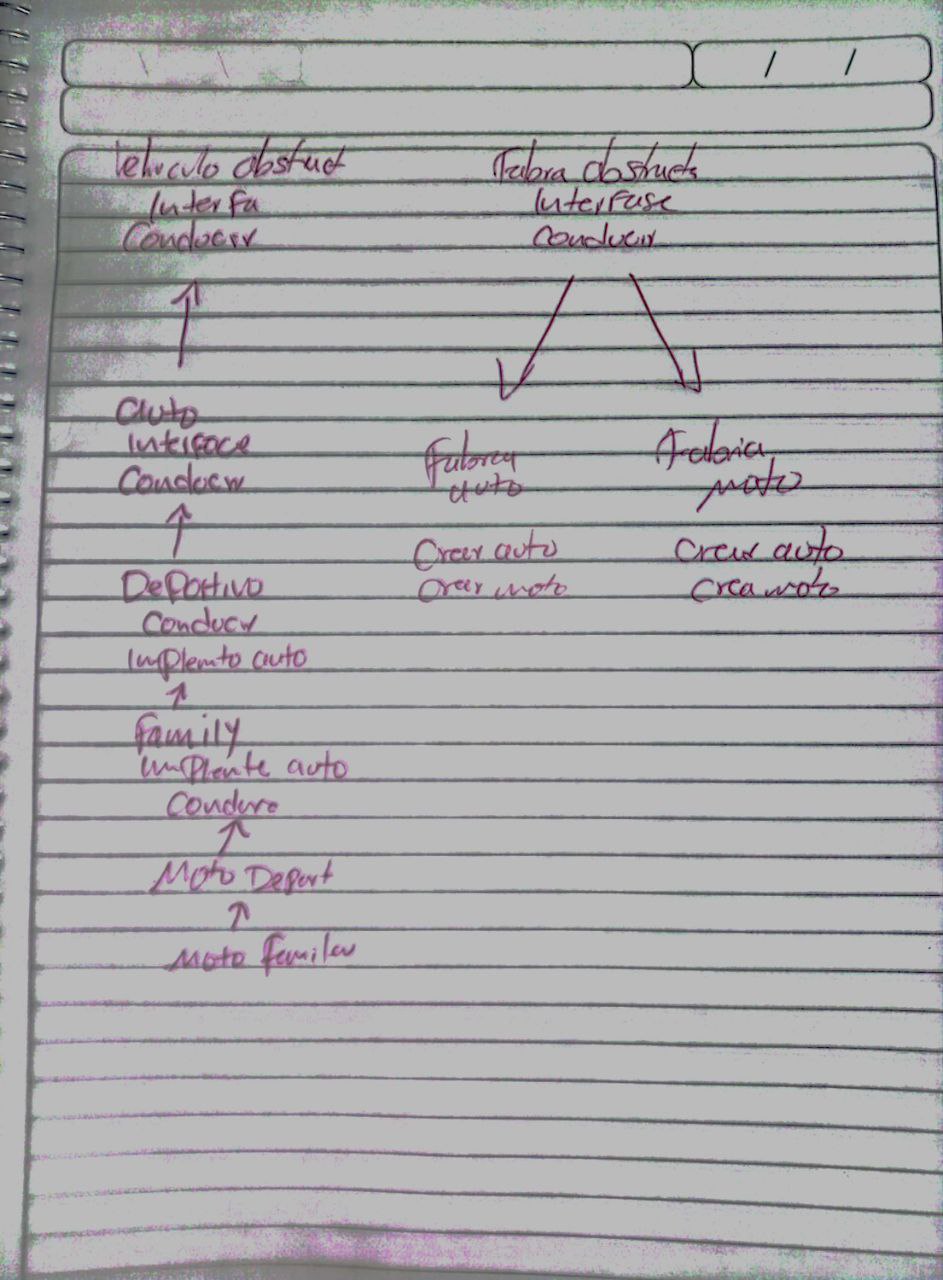 Vehiculo abstract
Interfa
Conducir
auto
Interface
Conducir
Deportivo
Conducir
Implemto auto
Family
Implente auto
Conduce
Moto Deport
Moto Familar
Fabra abstracta
Interfase
Conducir
Fabrica
auto
Crear auto
Crear moto
Fabrica
moto
Crear auto
Crea moto